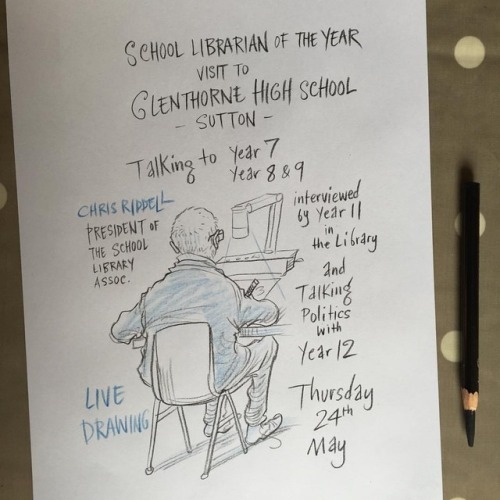 SCHOOL LIBRARIAN OF THE YEAR
VISIT TO
GLENTHORNE HIGH SCHOOL
- SUTTON -
Talking to Year 7
Year 8 & 9
CHRIS RIDDELL
PRESIDENT OF
THE SCHOOL
LIBRARY
ASSOC.
interviewed
by Year 11
in
the Library
and
Talking
Politics
with
Year 12
LIVE
DRAWING
Thursday
24th
May